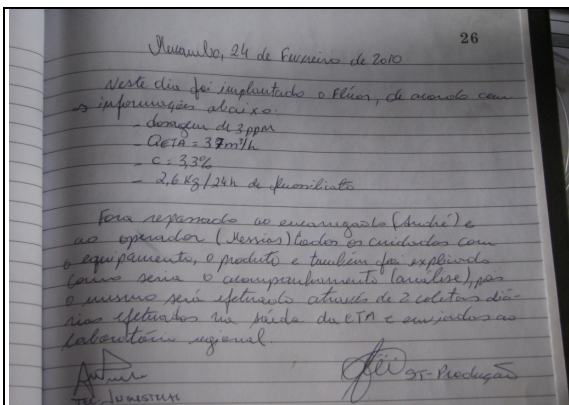 26
24 de Fevereiro de 2010
Neste dia foi implantado o Flúor, de acordo com
as informações abaixo:
- dosagem de 3 ppm
- QETA = 37 m³/h
- c = 3,3%
- 2,6 Kg/24h de fluossilicato
Fora repassado ao encarregado (André) e
ao operador (Messias) todos os cuidados com
o equipamento, o produto e também foi explicado
como seria o acompanhamento (análise), pois
o mesmo será efetuado através de 2 coletas diá-
rias efetuados na saída da ETA e enviados ao
laboratório regional.
GT-Produção